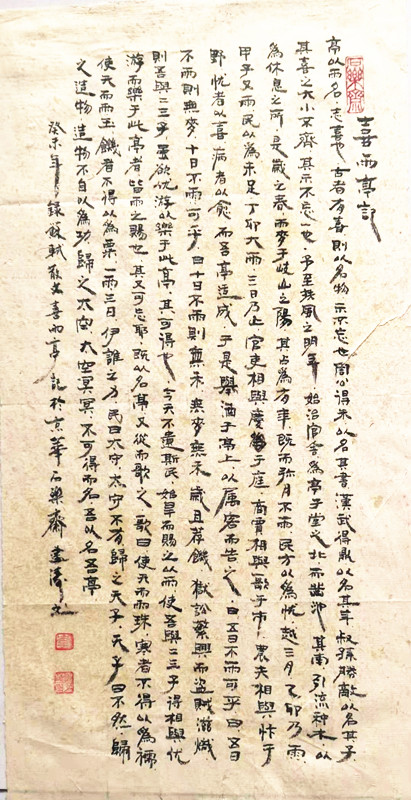 石樂齋
喜雨亭記
亭以雨名志喜也古者有喜則以名物示不忘也周公得禾以名其書漢武得鼎以名其年叔孫勝敵以名其子
其喜之大小不齊其示不忘一也予至扶風之明年始治官舍為亭于堂之北而鑿池其南引流种木以
為休息之所是歲之春雨麥于岐山之陽其占為有年既而弥月不雨民方以為忧越三月乙卯乃雨
甲子又雨民以為未足丁卯大雨三日乃止官吏相與慶于庭商賈相與歌于市農夫相與忭于
野忧者以喜病者以愈而吾亭适成于是舉酒于亭上以属客而告之曰五日不雨可乎曰五日
不雨則無麥十日不雨可乎曰十日不雨則無禾無麥無禾歲且荐饑獄訟繁興而盜賊滋熾
則吾與二三子虽欲优游以樂于此亭其可得也今天不遺斯民始旱而賜之以雨使吾與二三子得相與优
游而樂于此亭者皆雨之賜也其又可忘耶既以名亭又從而歌之歌曰使天而雨珠寒者不得以為襦
使天而雨玉饑者不得以為粟一雨三日伊誰之力民曰太守太守不有歸之天子天子曰不然歸
之造物造物不自以為功歸之太空太空冥冥不可得而名吾以名吾亭
癸未年錄蘇軾散文喜雨亭記於京華石樂齋